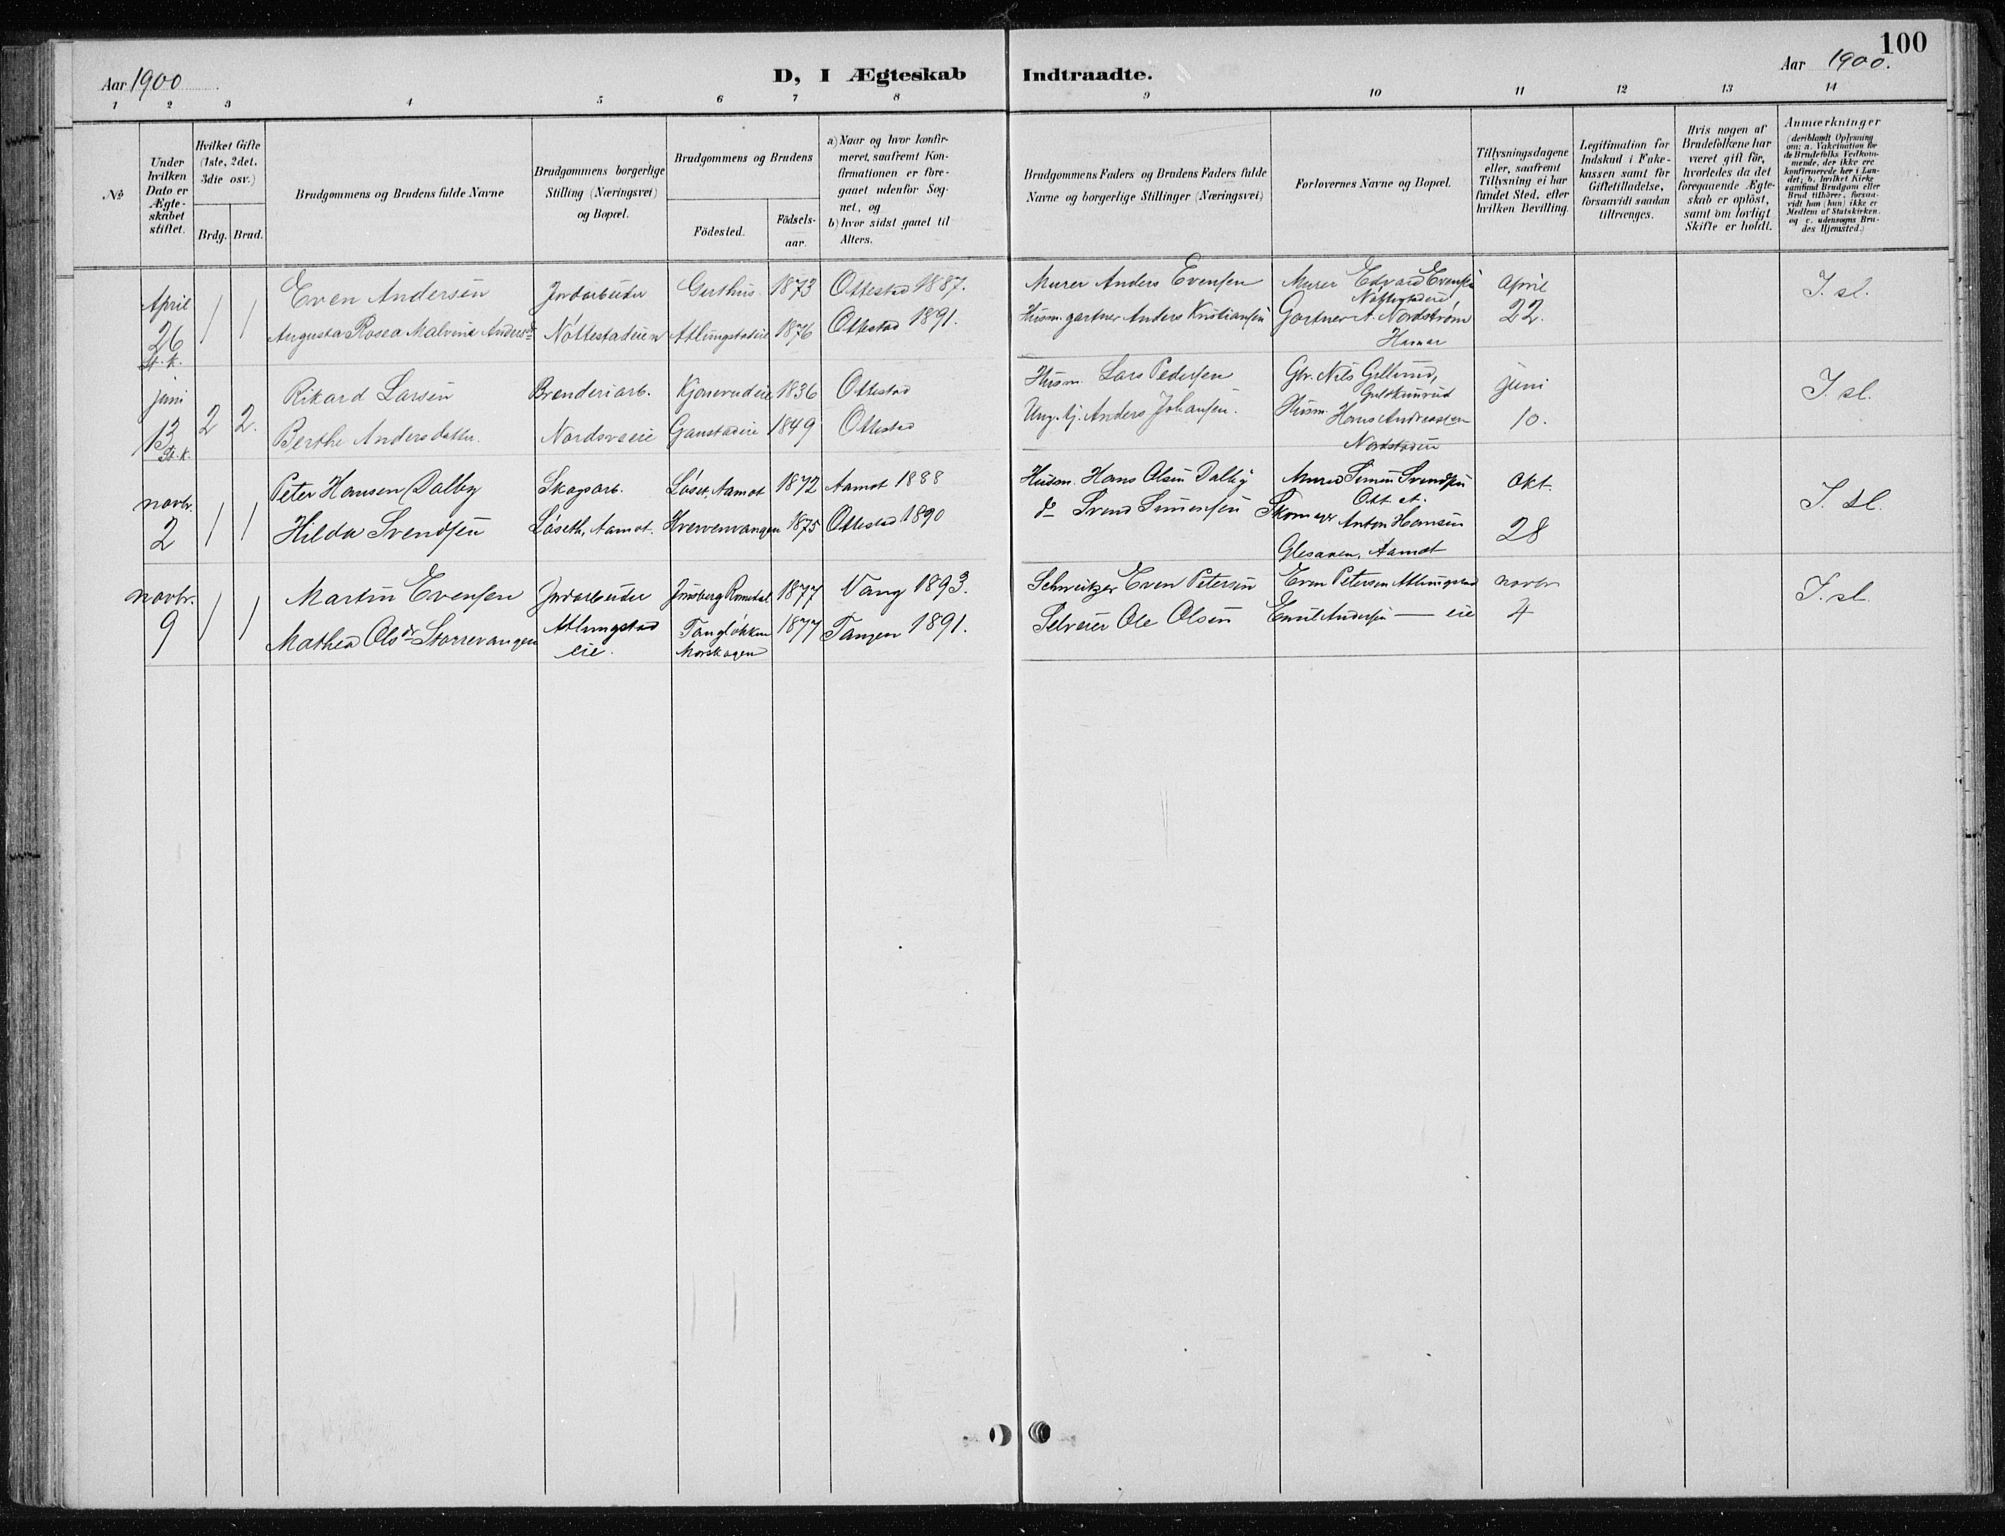 100
Aar 1900
D, I Ægteskab Indtraadte.
Aar 1900.
1 2 3 4 5 6 7 8 9 10 11 12 13 14
No
Under hvilken Dato er Ægteskabet stiftet.
Hvilket Gifte (1ste, 2det, 3die osv.)
Brdg. Brud.
Brudgommens og Brudens fulde Navne
Brudgommens borgerlige Stilling (Næringsvei) og Bopæl.
Brudgommens og Brudens
Födested.
Födselsaar.
a) Naar og hvor konfirmeret, saafremt Konfirmationen er foregaaet udenfor Sognet, og
b) hvor sidst gaaet til Alters.
Brudgommens Faders og Brudens Faders fulde Navne og borgerlige Stillinger (Næringsvei)
Forlovernes Navne og Bopæl.
Tillysningsdagene eller, saafremt Tillysning ei har fundet Sted, efter hvilken Bevilling.
Legitimation for Indskud i Fakekassen samt for Giftetilladelse, forsaavidt saadan tiltrænges.
Hvis nogen af Brudefolkene har været gift för, hvorledes da det foregaaende Ægteskab er oplöst, samt om lovligt Skifte er holdt.
Anmærkninger
(deriblandt Oplysning om: a. Vakcination for de Brudefolks Vedkommende, der ikke ere konfirmerede her i Landet; b. hvilket Kirkesamfund Brudgom eller Brud tilhörer, forsaavidt han (hun) ikke er Medlem af Statskirken, og c. udensogns Brudes Hjemsted.)
April 26 St. k.
1 1
Even Andersen Jordarbeider Gerthus 1873 Ottestad 1887. Murer Anders Evensen Murer Edvard Evensen April I. sl.
Augusta Rosea Malvine Andersdr Nøttestadeien Atlungstadeie 1876 Ottestad 1891. Husm. gartner Anders Kristiansen Gartner A. Nordstrøm 22.
Hamar
juni 13 St. k.
2 2.
Rikard Larsen Brenderiarb. 1836 Ottestad Husm. Lars Pedersen Gbr. Nils Gillund, juni I. sl.
Berthe Andersdatter. Nordsveeie Ganstadeie 1849 Ottestad Ung. kj. Anders Johansen. Husm. Hans Andreassen 10.
Nordstadeie
novbr. 2
1 1
Peter Hansen Dalby Skogsarb. Løset, Aamot 1872 Aamot 1888 Husm. Hans Olsen Dalby Murer Simen Svendsen Okt. I. sl.
Ott. et.
Hilda Svendsen Løseth, Aamot. Kvervenvangen 1875 Ottestad 1890 do Svend Simensen Skomager Anton Hansen 28
Glesaren, Aamot
novbr. 9
1 1
Martin Evensen Jordarbeider Romedal 1877 Vang 1893. Schweitzer Even Petersen Even Petersen Atlungstad novbr I. sl.
Mathea Olsdr Storrevangen Atlungstad eie. Tangløkken Morskogen 1877 Tangen 1891. Selveier Ole Olsen Emil Andersen — eie 4